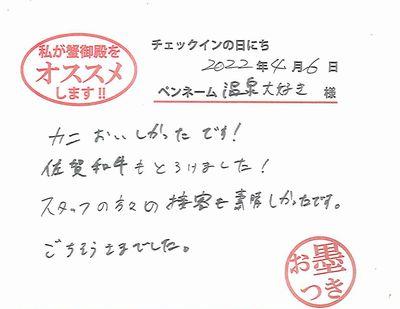 私が蟹御殿を
オススメ
します!!
チェックインの日にち
2022年4月6日
ペンネーム 温泉大好き 様
カニおいしかったです!
佐賀和牛もとろけました!
スタッフの方々の接客も素晴しかったです。
ごちそうさまでした。
お墨
つき